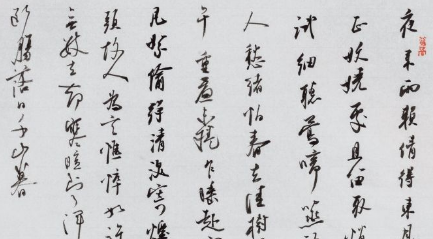 夜來雨賴倩得東
正妖嬈處且留取悄
試細聽鶯啼燕
人愁緒怕春去佳樹
午重簾未捲乍睡起
風絮偷彈清淚寄煙
頭故人為言憔悴如許
無數去卻寒暄到了渾
斷腸落日千山暮